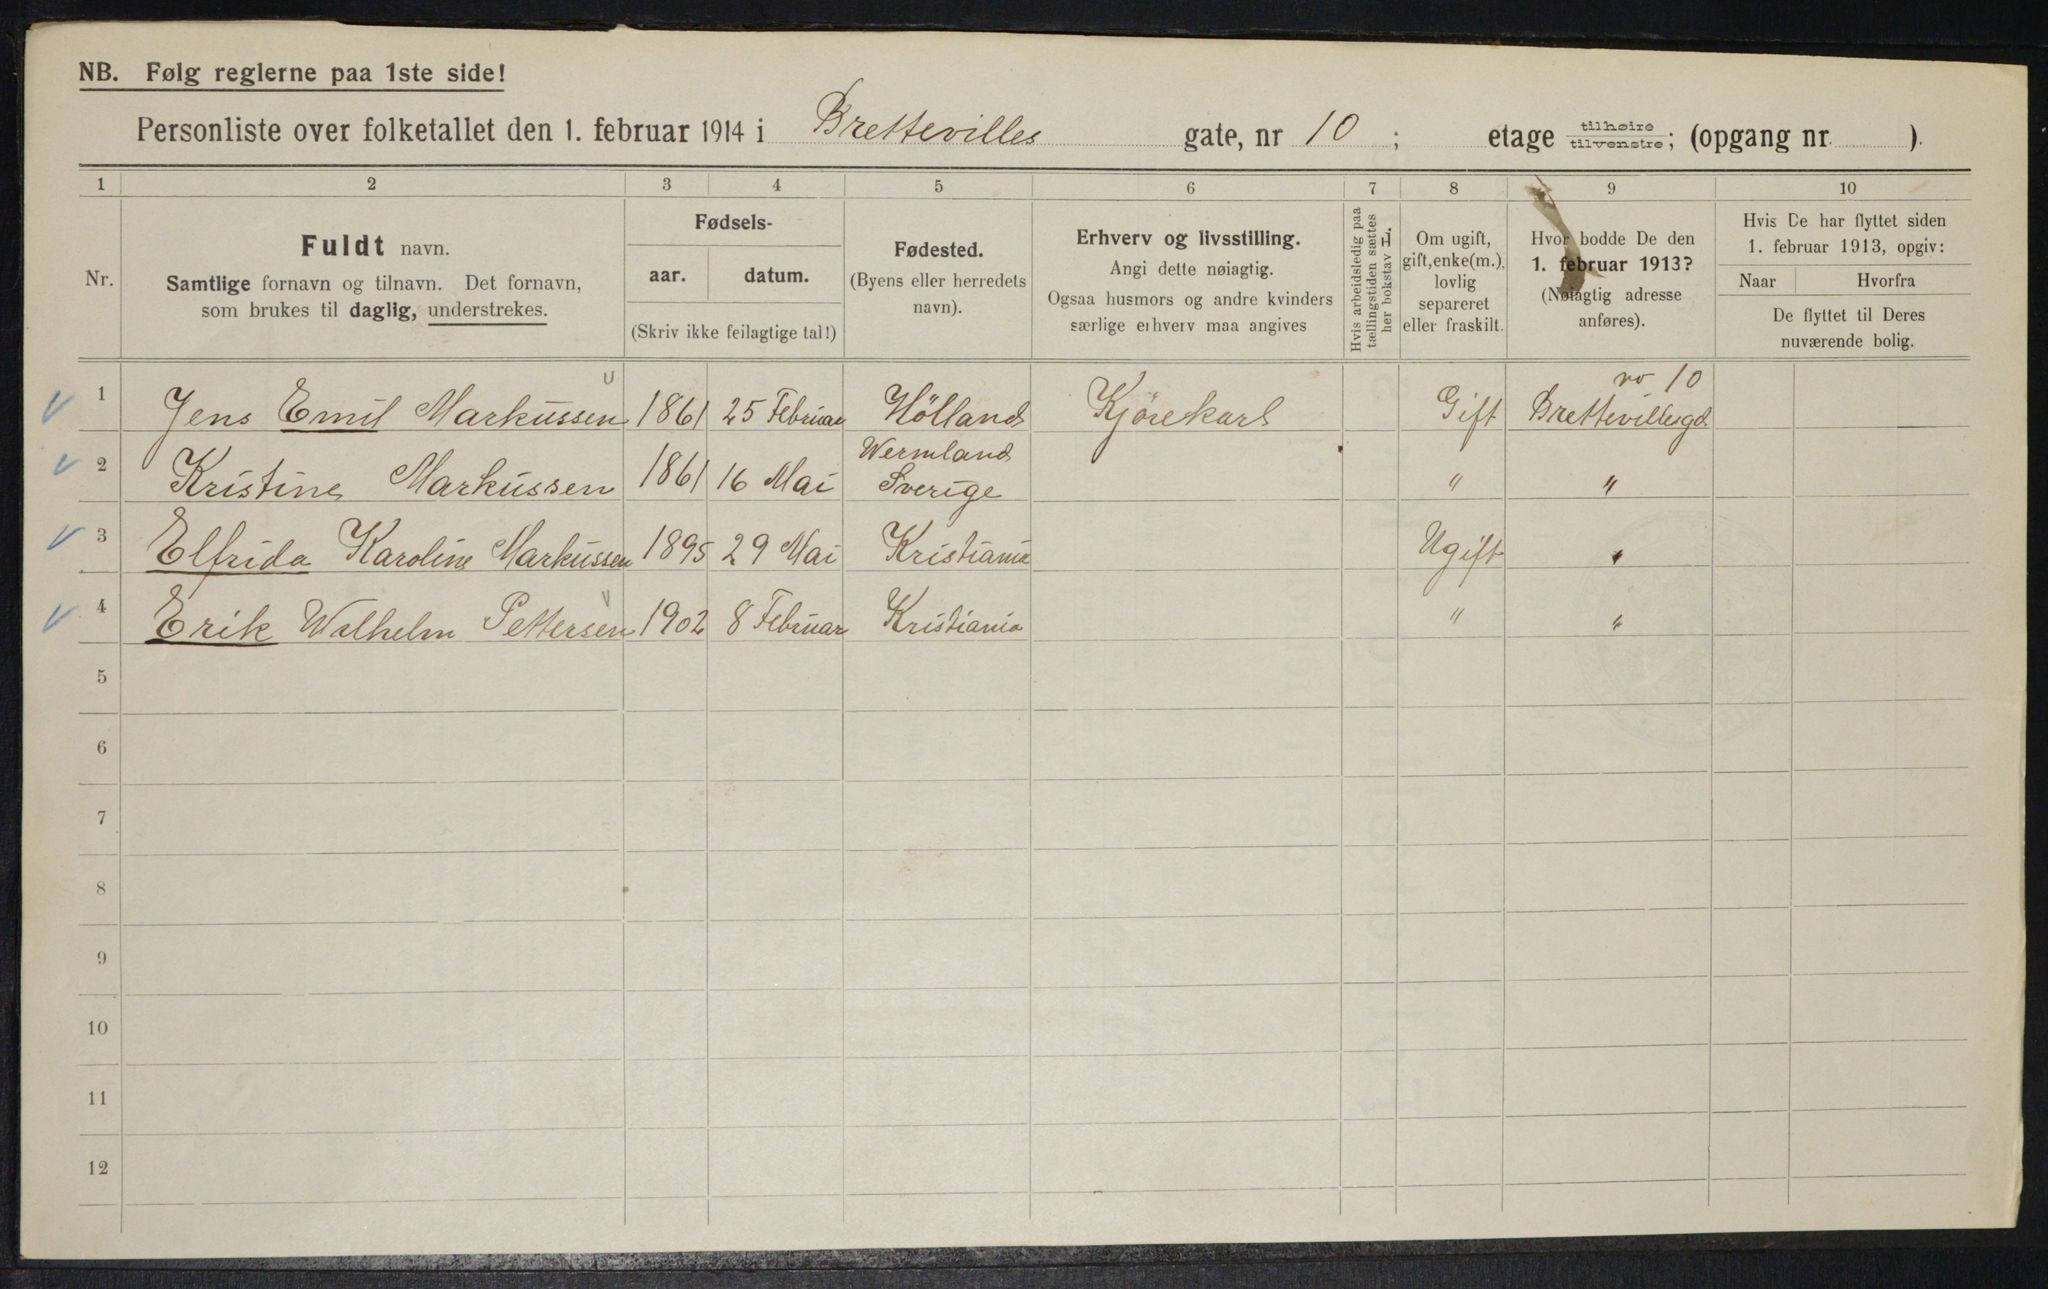 NB. Følg reglerne paa 1ste side!
Personliste over folketallet den 1. februar 1914 i Brettevilles gate, nr 10 ; etage tilhøire tilvenstre; (opgang nr. ).
1 2 3 4 5 6 7 8 9 10
Nr.
Fuldt navn.
Samtlige fornavn og tilnavn. Det fornavn,
som brukes til daglig, understrekes.
Fødsels-
aar. datum.
(Skriv ikke feilagtige tal!)
Fødested.
(Byens eller herredets
navn).
Erhverv og livsstilling.
Angi dette nøiagtig.
Ogsaa husmors og andre kvinders
særlige erhverv maa angives
Hvis arbeidsledig paa
tællingstiden sættes
her bokstav L.
Om ugift,
gift, enke(m.),
lovlig
separeret
eller fraskilt.
Hvor bodde De den
1. februar 1913?
(Nøiagtig adresse
anføres).
Hvis De har flyttet siden
1. februar 1913, opgiv:
Naar Hvorfra
De flyttet til Deres
nuværende bolig.
no 10
1 Jens Emil Markussen 1861 25 Februar Hölland Kjörekarl Gift Brettevillesgd
Wermland
2 Kristine Markussen 1861 16 Mai Sverige " "
3 Elfrida Karoline Markussen 1895 29 Mai Kristiania Ugift "
4 Erik Walhelm Pettersen 1902 8 Februar Kristiania " "
5
6
7
8
9
10
11
12